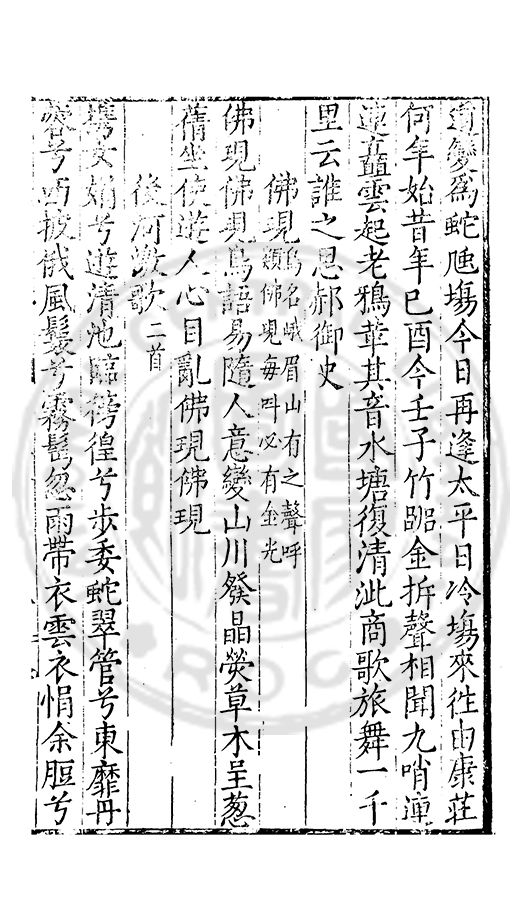 道變為蛇虺塲今日再逢太平日冷塲來徃由康莊
何年始昔年巳酉今壬子竹䶉金拆聲相聞九哨連
連矗雲起老鴉䓁其音水塘復清泚商歌旅舞一千
里云誰之恩郝御史
佛現鳥名峨眉山有之聲呼類佛現每呌必有金光
佛現佛現鳥語易隨人意變山川發晶熒草木呈葱
蒨坐使遊人心目亂佛現佛現
後河激歌二首
携女娟兮遊清池臨徬徨兮步委蛇翠管兮東靡丹
容兮西披俄風鬟兮霧髩忽雨帶衣雲衣悁余脰兮